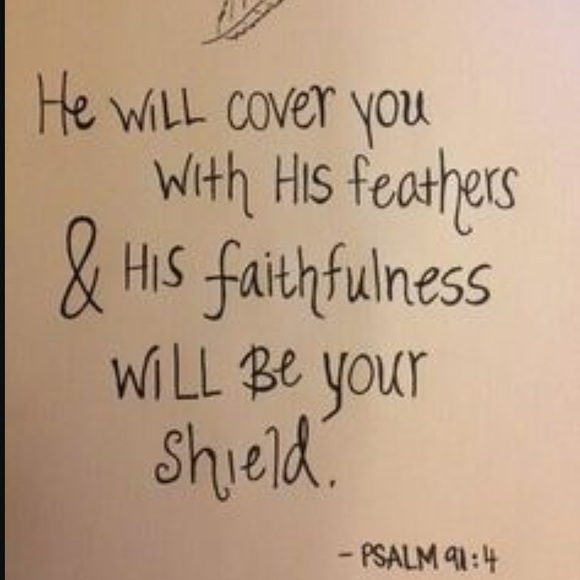 He will cover you
with His feathers
& His faithfulness
will Be your
shield.
- PSALM 91:4